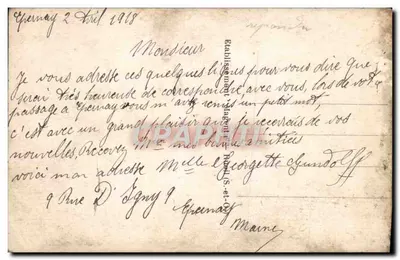 Epernay 2 Avril 1918
répondu
Monsieur
Je vous adresse ces quelques lignes pour vous dire que
serai très heureuse de correspondre avec vous, lors de vot
passage a Epernay vous m'avez remis un petit mot
c'est avec un grand plaisir que je recevrais de vos
nouvelles, Recevez Mr mes bonne amitiés
voici mon adresse Melle Georgette Gundolff
9 Rue D'Igny 9
Epernay
Marne